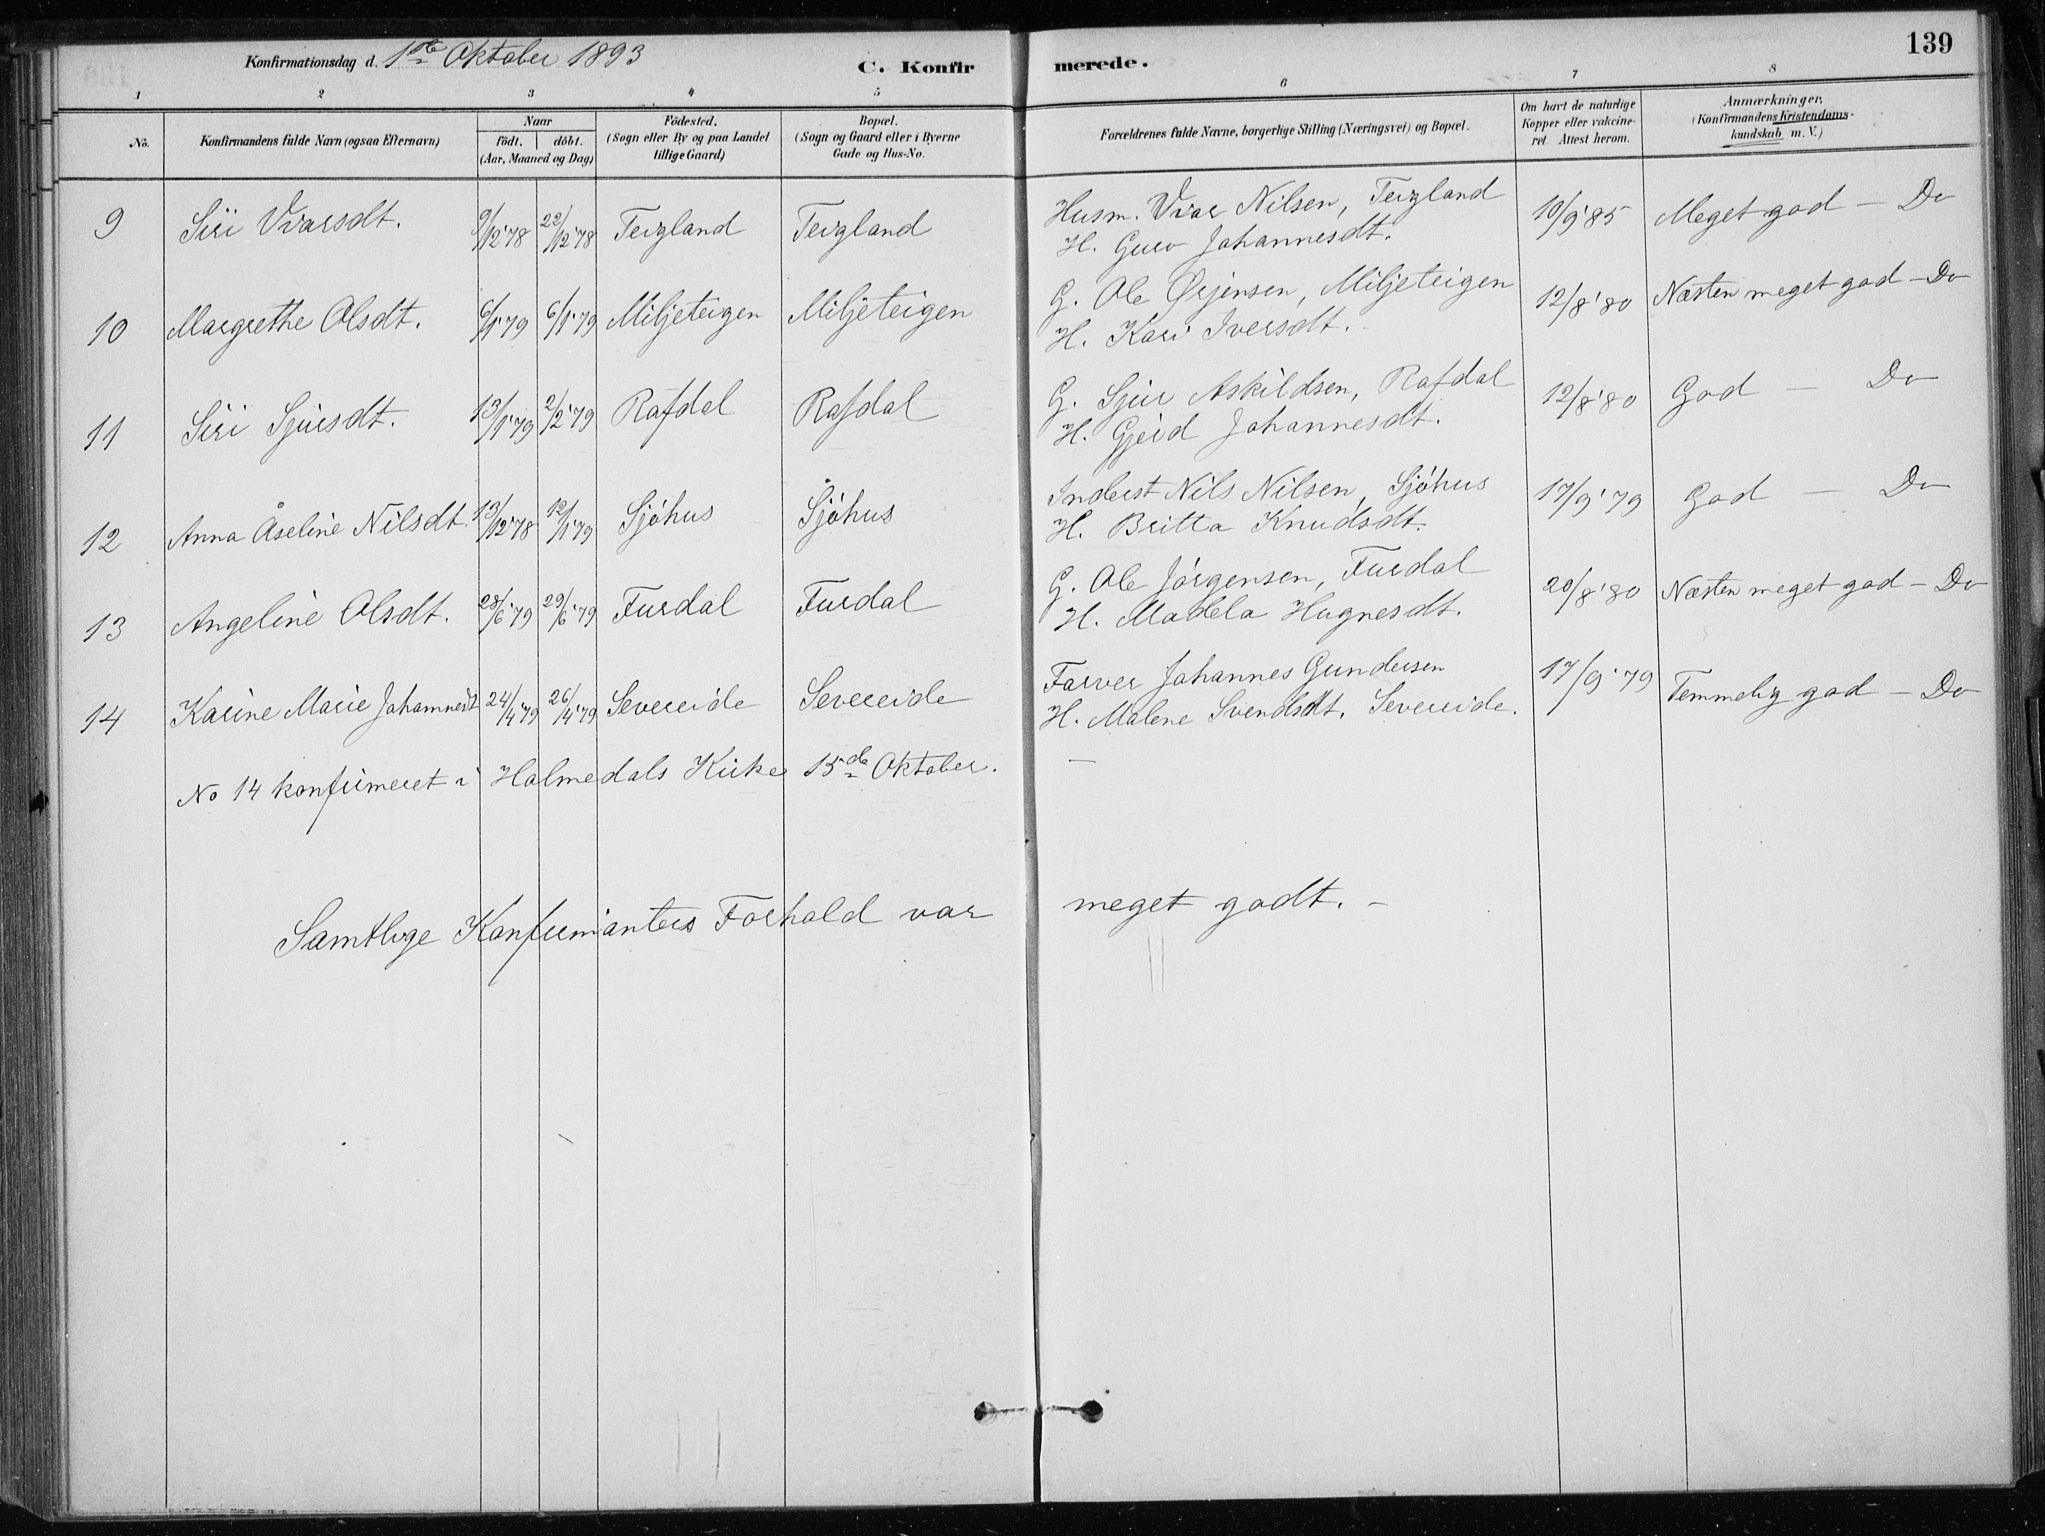 Konfirmationsdag d. 1ste Oktober 1893
C. Konfirmerede.
139
1 2 3 4 5 6 7 8
No. Konfirmandens fulde Navn (ogsaa Efternavn) Naar födt. döbt. (Aar, Maaned og Dag) Födested. (Sogn eller By og paa Landet tillige Gaard) Bopæl. (Sogn og Gaard eller i Byerne Gade og Hus-No. Forældrenes fulde Navne, borgerlige Stilling (Næringsvei) og Bopæl. Om havt de naturlige Kopper eller vakcineret. Attest herom. Anmærkninger, (Konfirmandens Kristendomskundskab m. V.)
9 Siri Ivarsdt. 9/12'78 22/12'78 Teigland Teigland Husm. Ivar Nilsen, Teigland 10/9'85 Meget god — Do
H. Guro Johannesdt.
10 Margrethe Olsdt. 6/1'79 6/1'79 Miljeteigen Miljeteigen G. Ole Örjensen, Miljeteigen 12/8'80 Næsten meget god — Do
H. Kari Iversdt.
11 Siri Sjursdt. 13/1'79 2/2'79 Rafdal Rafdal G. Sjur Askildsen, Rafdal 12/8'80 God — Do
H. Gjerd Johannesdt.
12 Anna Åseline Nilsdt. 13/12'78 12/1'79 Sjóhus Sjóhus Inderst Nils Nilsen, Sjóhus 17/9'79 God — Do
H. Britta Knudsdt.
13 Angeline Olsdt. 28/6'79 29/6'79 Furdal Furdal G. Ole Jórgensen, Furdal 20/8'80 Næsten meget god — Do
H. Madela Hagnesdt.
14 Karine Marie Johannesdt 24/4'79 26/4'79 Severeide Severeide Farver Johannes Gundersen 17/9'79 Temmelig god — Do
H. Malene Svendsdt. Severeide.
No 14 konfirmeret i Holmedals Kirke 15de Oktober. —
Samtlige Konfirmanters Forhold var meget godt. —